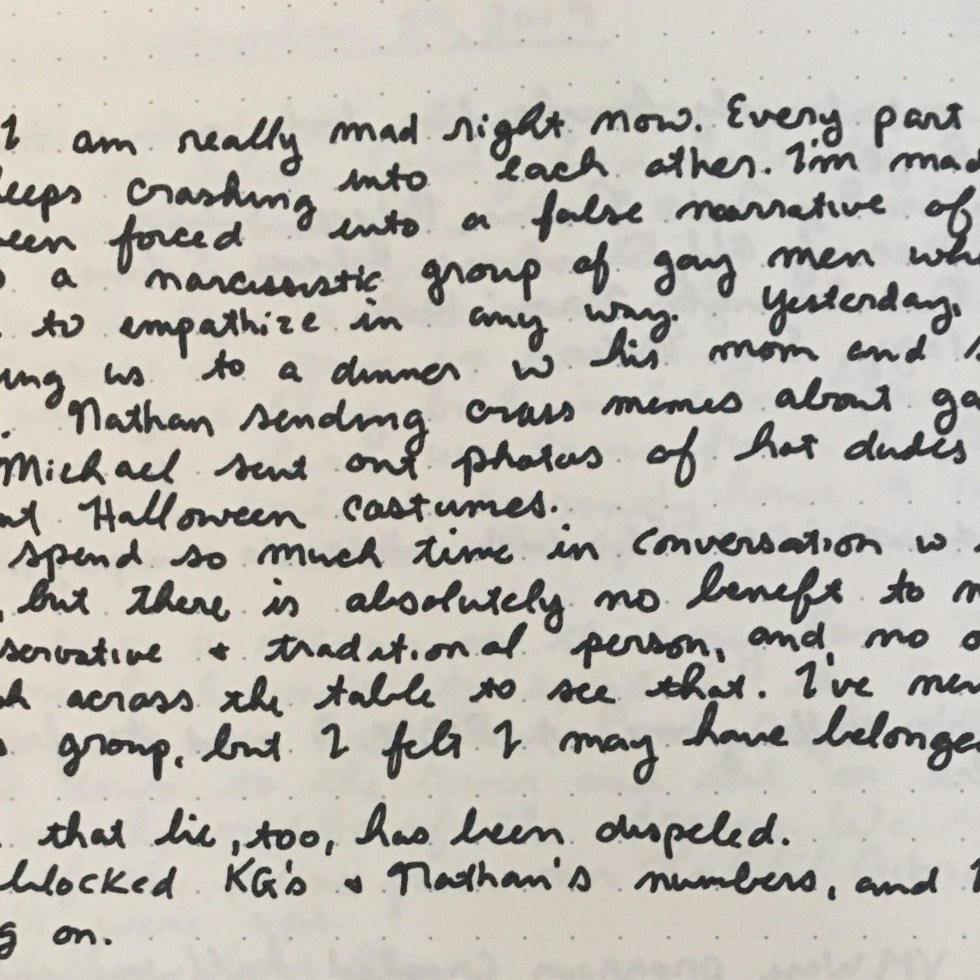 I am really mad right now. Every part
keeps crashing into each other. I'm mad
been forced into a false narrative of
a narcissistic group of gay men who
to empathize in any way. Yesterday,
us to a dinner w his mom and
. Nathan sending crass memes about
Michael sent out photos of hot dudes
Halloween costumes.
spend so much time in conversation w
, but there is absolutely no benefit to
servative + traditional person, and no
across the table to see that. I've
group, but I felt I may have belonge
that lie, too, has been dispeled.
blocked KG's + Nathan's numbers, and I
on.